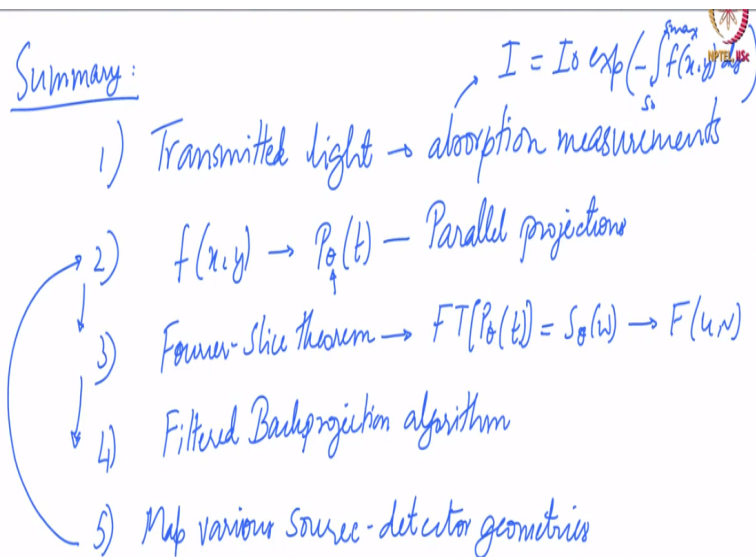 Summary:
I = I0 exp(-∫ f(x,y) ds)
smax
s0
NPTEL, IISc
1) Transmitted light → absorption measurements
2) f(x,y) → Pθ(t) – Parallel projections
3) Fourier-Slice theorem → FT[Pθ(t)] = Sθ(w) → F(u,v)
4) Filtered Backprojection algorithm
5) Map various source-detector geometries